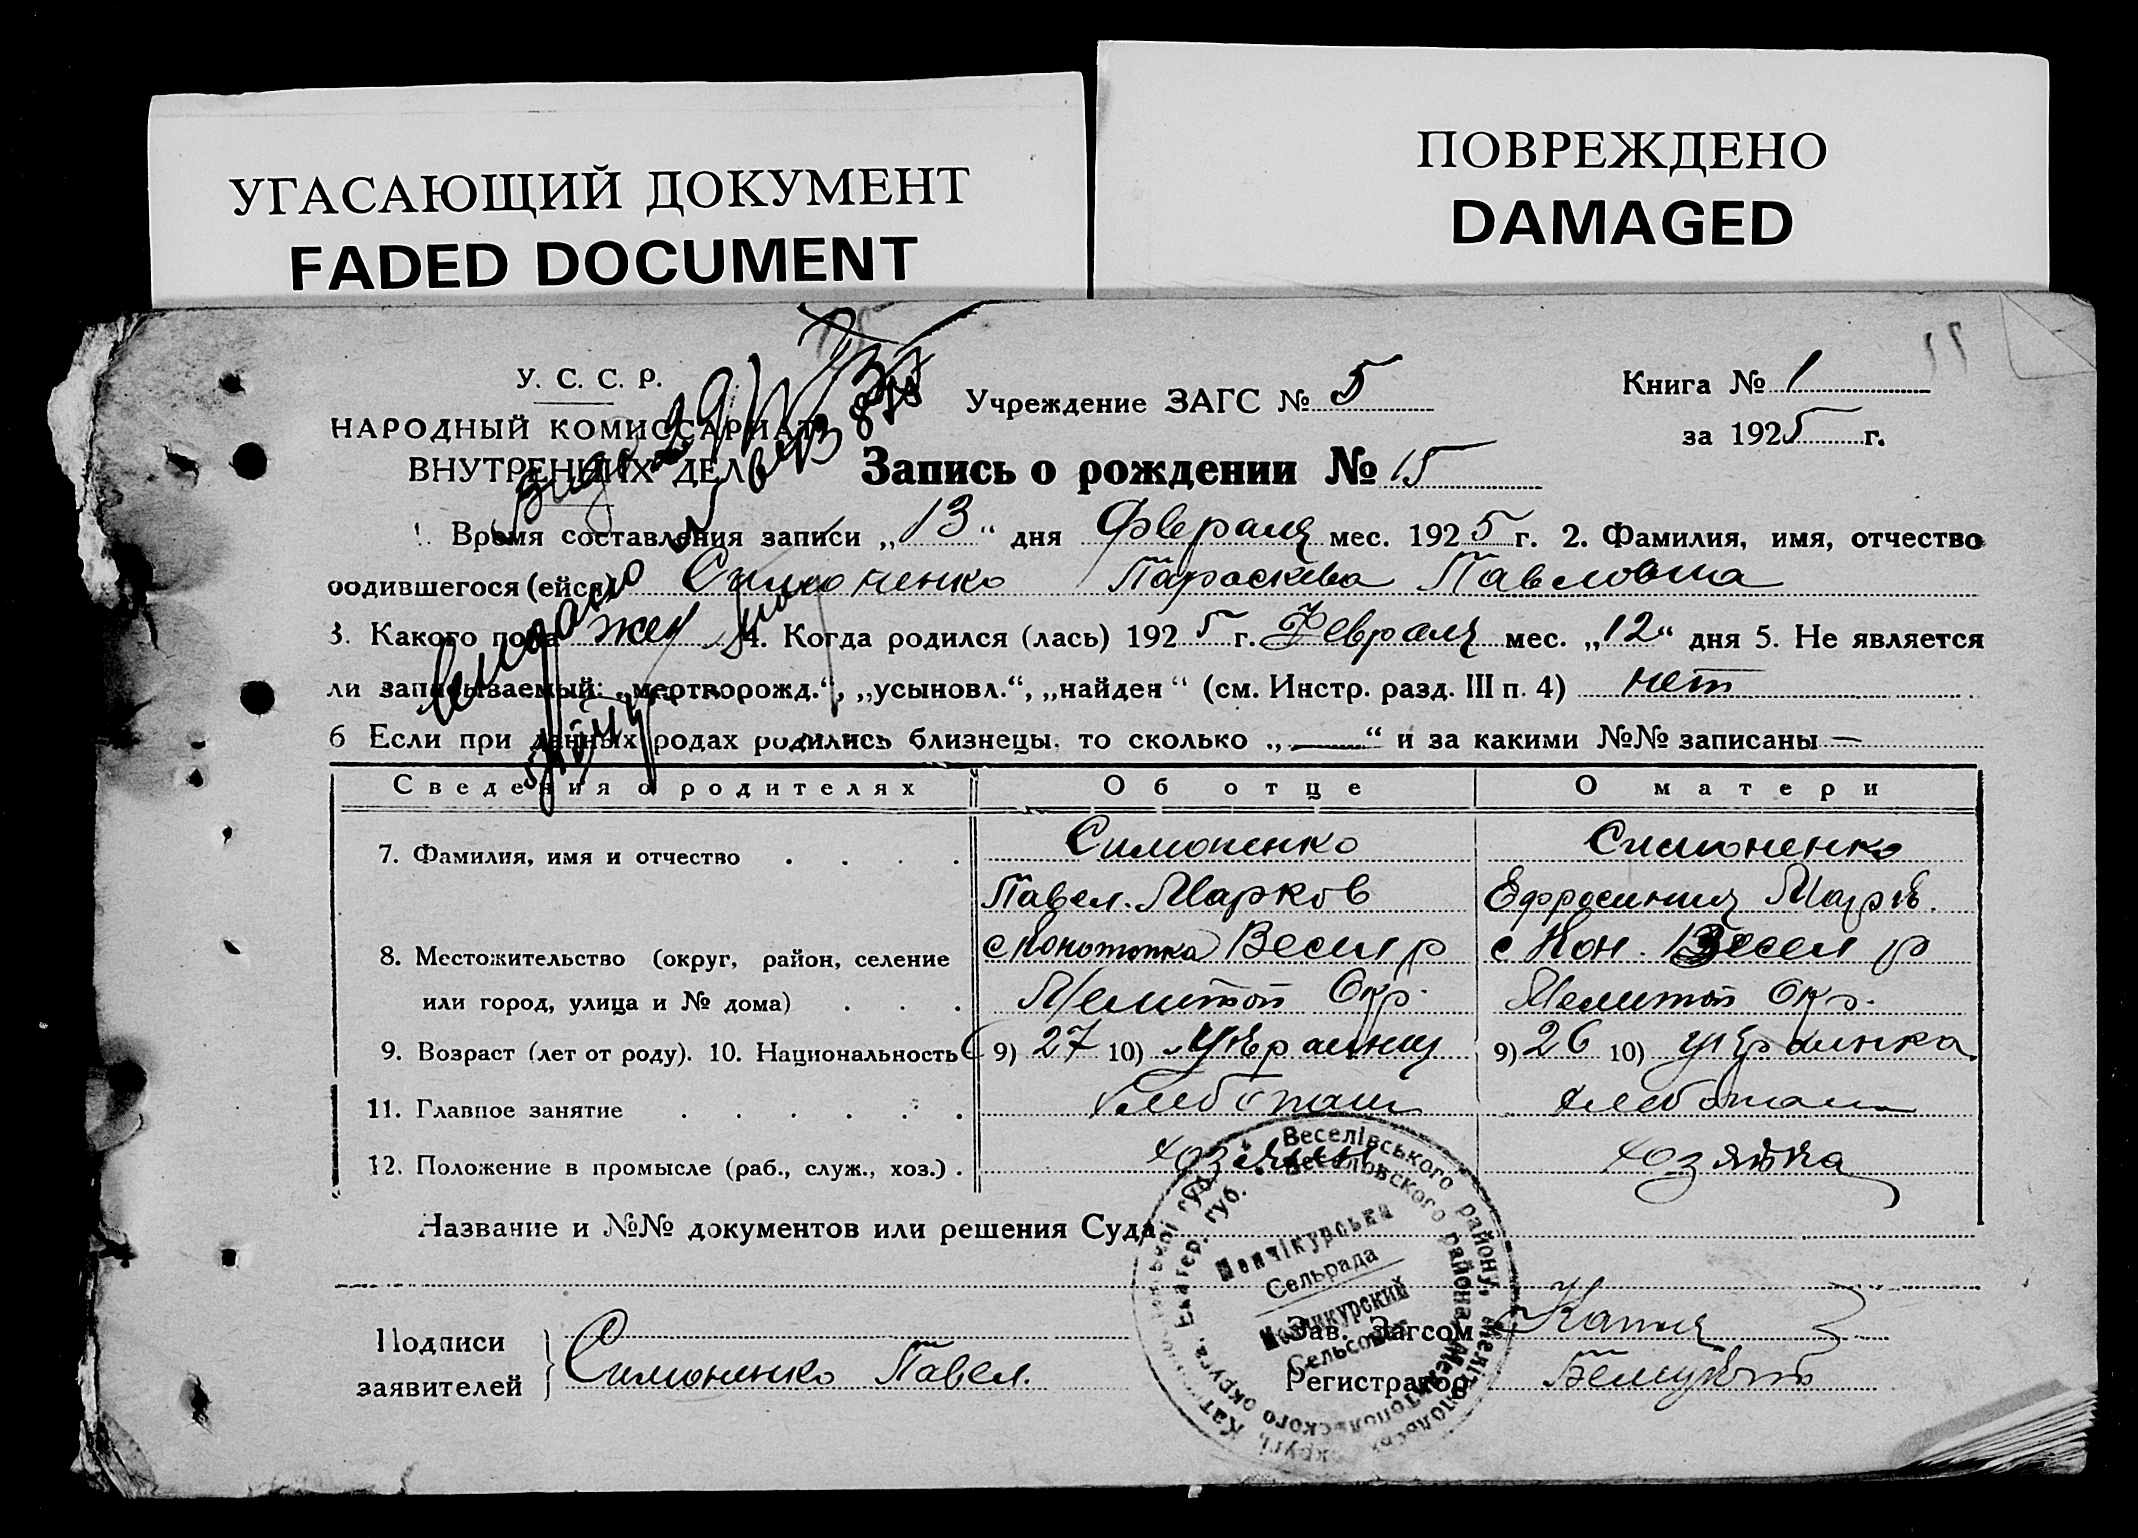 УГАСАЮЩИЙ ДОКУМЕНТ
FADED DOCUMENT
ПОВРЕЖДЕНО
DAMAGED
У. С. С. Р.
НАРОДНЫЙ КОМИССАРИАТ
ВНУТРЕННИХ ДЕЛ
Учреждение ЗАГС № 5
Книга № 1
за 1925 г.
Запись о рождении № 15
1. Время составления записи „13“ дня Февраля мес. 1925 г. 2. Фамилия, имя, отчество
родившегося (ейся) Симоненко Параскева Павловна
3. Какого пола жен 4. Когда родился (лась) 1925 г. Февраля мес. „12“ дня 5. Не является
ли записываемый: „мертворожд.“, „усыновл.“, „найден“ (см. Инстр. разд. III п. 4) нет
6 Если при данных родах родились близнецы, то сколько „—“ и за какими №№ записаны —
Сведения о родителях Об отце О матери
7. Фамилия, имя и отчество . . . . Симоненко Симоненко
Павел. Марков Ефросиния
8. Местожительство (округ, район, селение Весел р с Кон. Весел р
или город, улица и № дома) . . . Мелитоп Окр. Мелитоп Окр.
9. Возраст (лет от роду). 10. Национальность 9) 27 10) Украинец 9) 26 10) украинка
11. Главное занятие . . . . . . хлебопаш хлебопаш
12. Положение в промысле (раб., служ., хоз.) . хозяин хозяйка
Название и №№ документов или решения Суда
Веселівського району, Мелітопольської
Веселовского района, Мелитопольского округа, Екатер. губ.
Сельрада
Сельсовет
Подписи
заявителей
Симоненко Павел.
Зав. Загсом
Регистратор